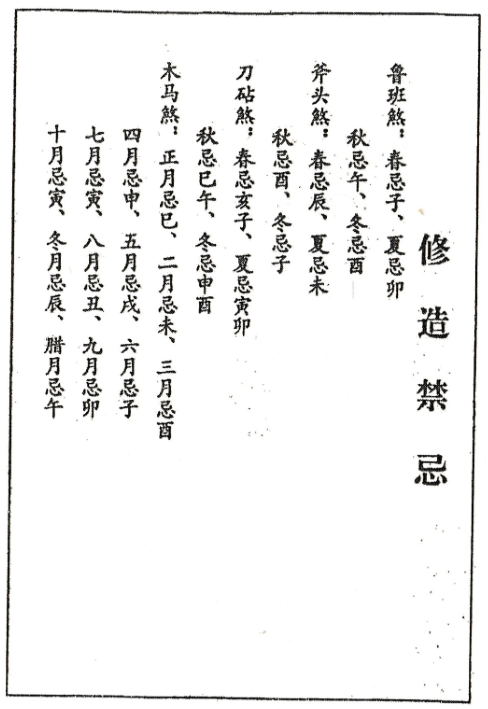 修造禁忌
鲁班煞：春忌子、夏忌卯
秋忌午、冬忌酉
斧头煞：春忌辰、夏忌未
秋忌酉、冬忌子
刀砧煞：春忌亥子、夏忌寅卯
秋忌巳午、冬忌申酉
木马煞：正月忌巳、二月忌未、三月忌酉
四月忌申、五月忌戌、六月忌子
七月忌寅、八月忌丑、九月忌卯
十月忌寅、冬月忌辰、腊月忌午